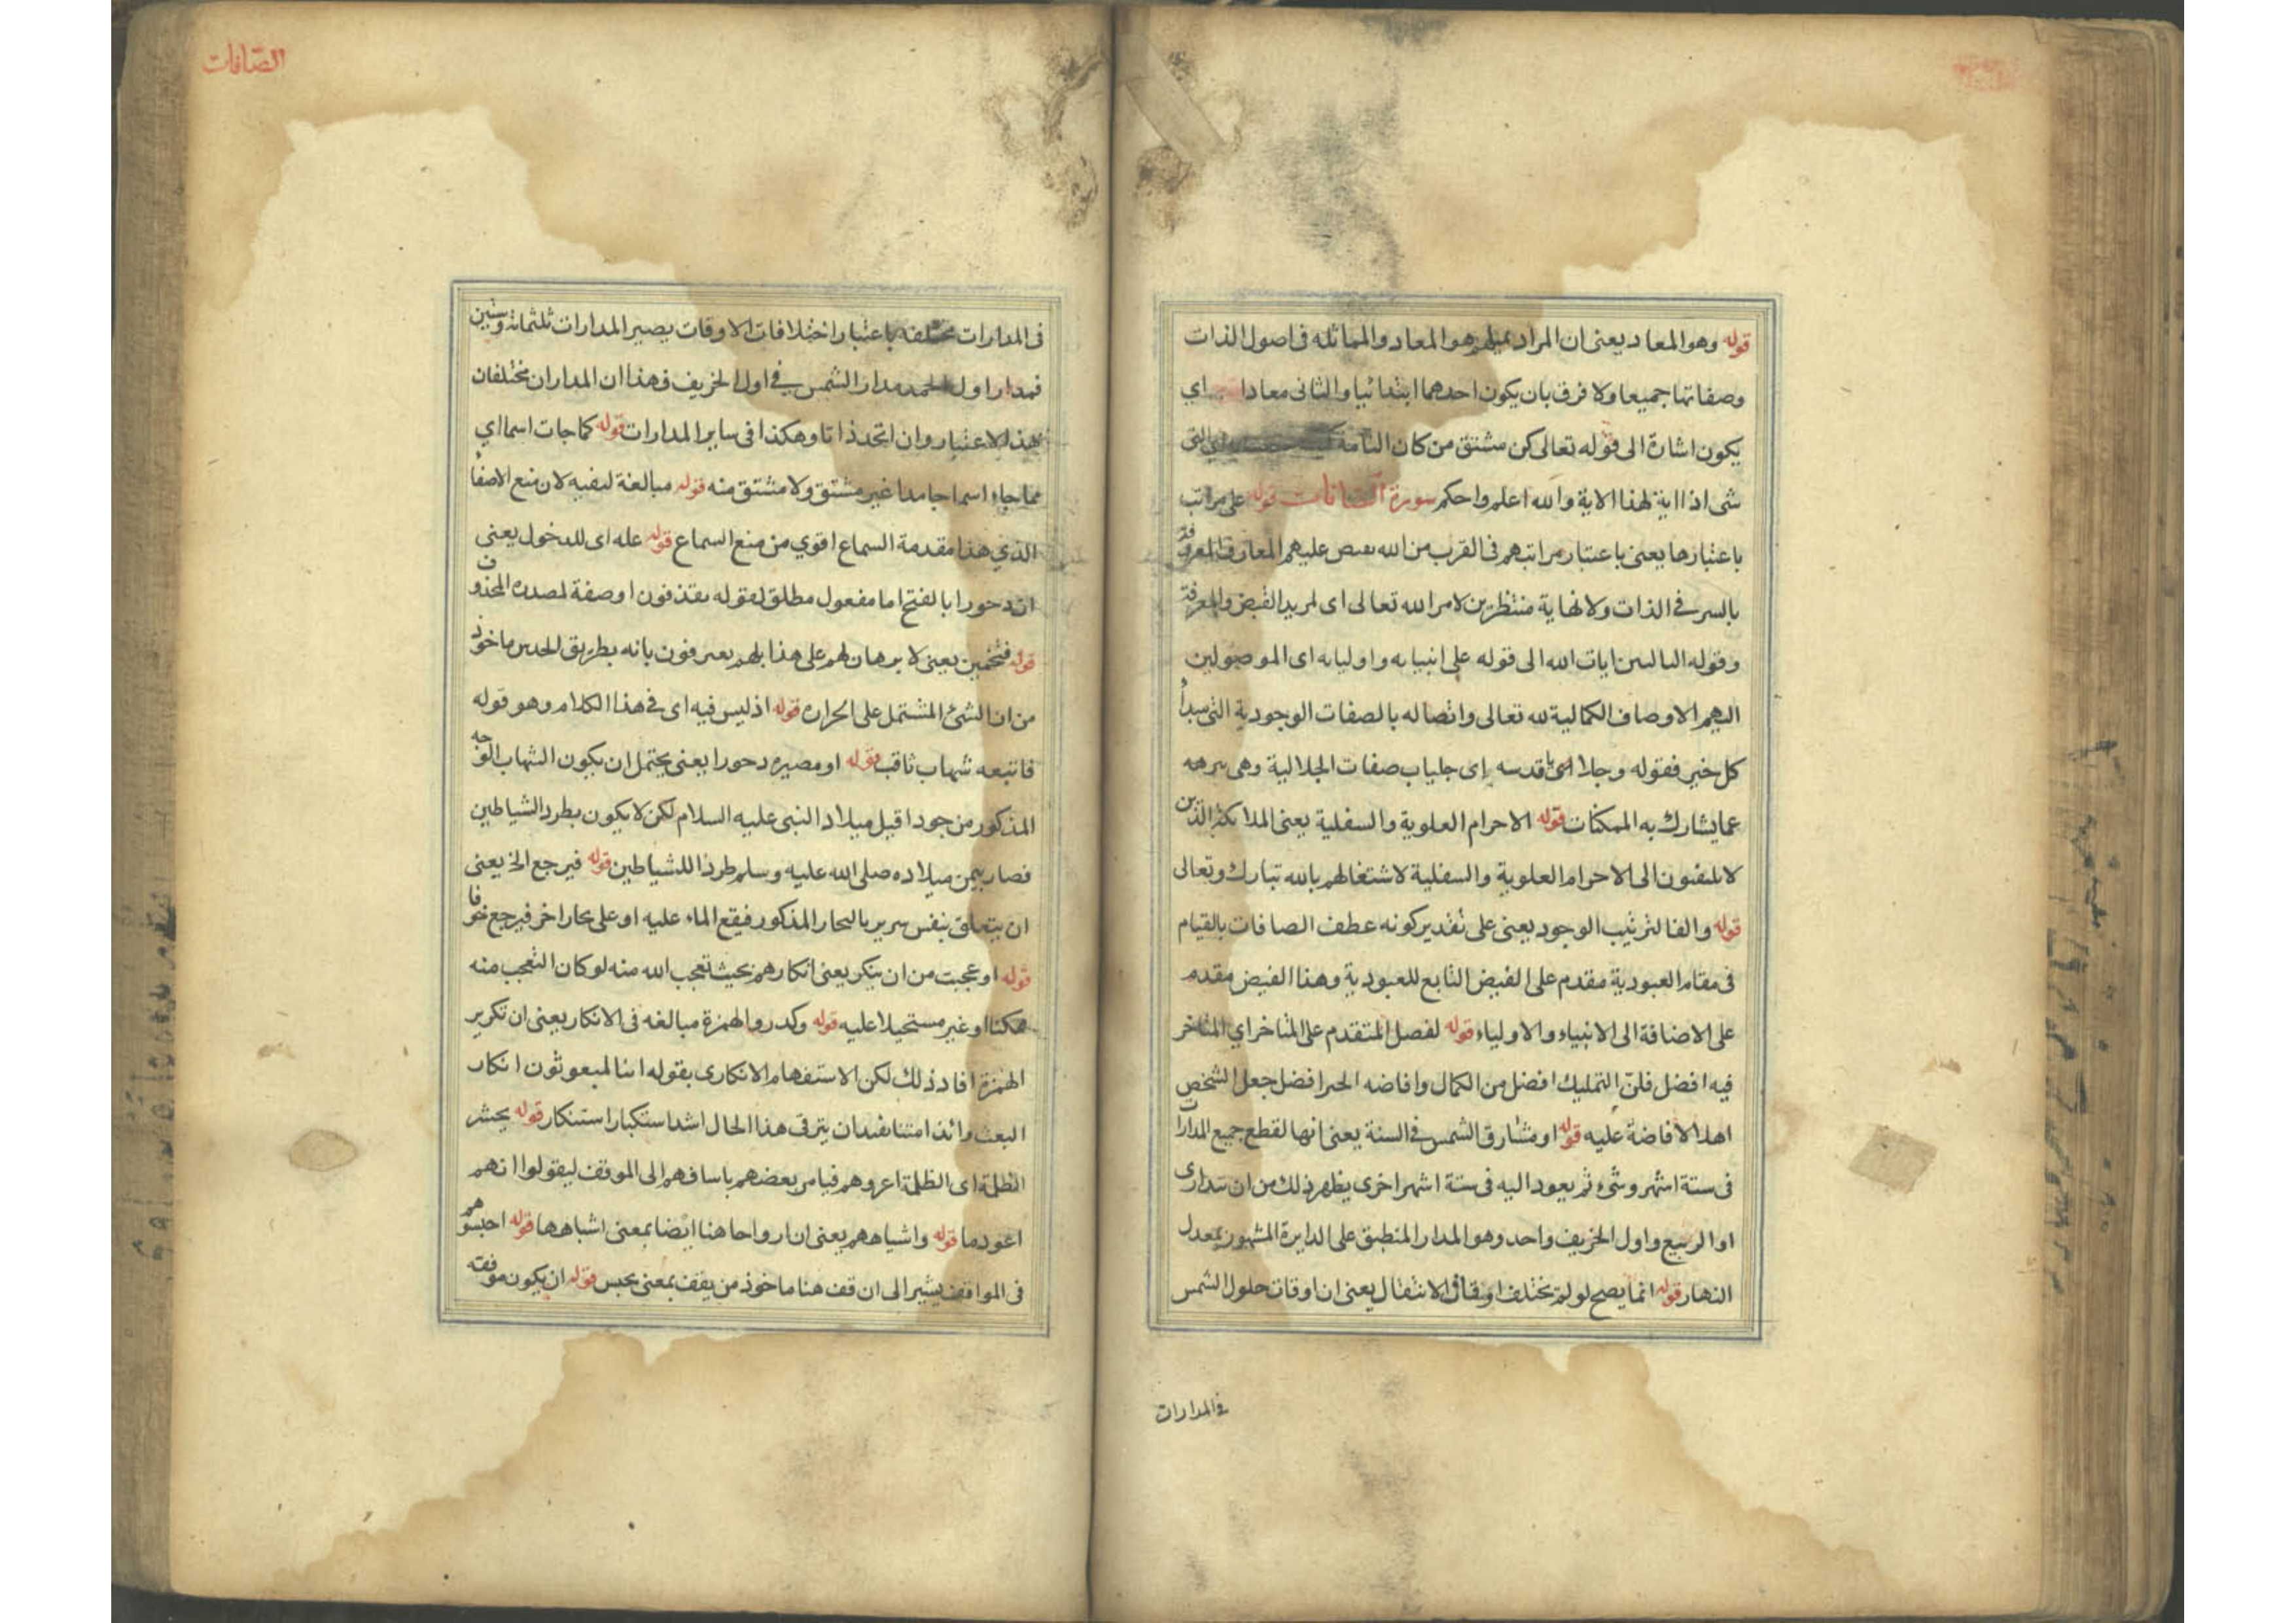 قوله وهو المعاد يعنى ان المراد بمثلهم هو المعاد والمماثله فى اصول الذات
وصفاتها جميعا ولا فرق بان يكون احدهما ابتدائيا والثانى معادا اى
يكون اشارة الى قوله تعالى كن مشتق من كان التامة
شى اذا اية لهذا الاية والله اعلم واحكم سورة الصافات قوله على مراتب
باعتبارها يعنى باعتبار مراتبهم فى القرب من الله تعالى عليهم المعارف
بالسر فى الذات ولا نهاية منتظرين لامر الله تعالى اى لمريد الفيض والمعرفة
وقوله التالين ايات الله الى قوله على انبيايه واوليايه اى الموصولين
اليهم الاوصاف الكمالية لله تعالى واتصاله بالصفات الوجودية التى مبدأ
كل خير فقوله وجلايا قدسه اى جلياب صفات الجلالية وهى
عما يشارك به الممكنات قوله الاجرام العلوية والسفلية يعنى الملائكة الذين
لا يلتفتون الى الاجرام العلوية والسفلية لاشتغالهم بالله تبارك وتعالى
قوله والفا لترتيب الوجود يعنى على تقدير كونه عطف الصافات بالقيام
فى مقام العبودية مقدم على الفيض التابع للعبودية وهذا الفيض مقدم
على الاضافة الى الانبياء والاولياء قوله لفصل المتقدم على المتاخر اي المتاخر
فيه افضل فلن التمليك افضل من الكمال وافاضه الخير افضل جعل الشخص
اهلا لافاضة عليه قوله او مشارق الشمس فى السنة يعنى انها لقطع جميع المدارات
فى ستة اشهر وشىء ثم يعود اليه فى ستة اشهر اخرى يظهر ذلك من ان مدارى
او الربيع واول الخريف واحد وهو المدار المنطبق على الدايرة المشهورة بمعدل
النهار قوله انما يصح لو لم تختلف اوقات الانتقال يعنى ان اوقات حلول الشمس
فى المدارات
الصافات
فى المدارات مختلفه باعتبار اختلافات الاوقات يصير المدارات ثلثمائة وستين
فمدار اول الحمد مدار الشمس فى اول الخريف فهذا ان المداران مختلفان
بهذا الاعتبار وان اتحد ذاتا وهكذا فى ساير المدارات قوله كما جات اسما اي
مما جاء اسما جامدا غير مشتق ولا مشتق منه قوله مبالغة لنفيه لان منع الاصفا
الذي هذا مقدمة السماع اقوي من منع السماع قوله عله اى للدخول يعنى
ان دحورا بالفتح اما مفعول مطلق لقوله يقذفون او صفة لمصدره المحذوف
قوله فتخمين يعنى لا برهان لهم على هذا بلهم يعرفون بانه بطريق الحدس ماخوذ
من ان الشئ المشتمل على الحراره قوله اذ ليس فيه اى فى هذا الكلام وهو قوله
فاتبعه شهاب ثاقب قوله او مصيره دحورا يعنى يحتمل ان يكون الشهاب الوجه
المذكور من جودا قبل ميلاد النبى عليه السلام لكن لا يكون بطرد الشياطين
فصار بيمن ميلاده صلى الله عليه وسلم طردا للشياطين قوله فيرجع الخ يعنى
ان يتعلق بنفس سرير بالبخار المذكور فيقع الماء عليه او على بحار اخر فيرجع خوفا
قوله او عجبت من ان ينكر يعنى انكارهم بحيث تعجب الله منه لو كان التعجب منه
ممكنا او غير مستحيلا عليه قوله وكدروا لهمزة مبالغه فى الانكار يعنى ان تكرير
الهمزة افاد ذلك لكن الاستفهام الانكارى بقوله ائنا لمبعوثون انكار
البعث وائذا متنا يفيد ان يترقى هذا الحال اشد استكبار استنكار قوله يحشر
الظلمة اى الظلمة اعروهم فيامر بعضهم باسافهم الى الموقف ليقولوا انهم
اعودما قوله واشباههم يعنى ان ارواحا هنا ايضا بمعنى اشباهها قوله احبسوهم
فى المواقف يشير الى ان قف هنا ماخوذ من يقف بمعنى يحبس قوله ان يكون موقفه